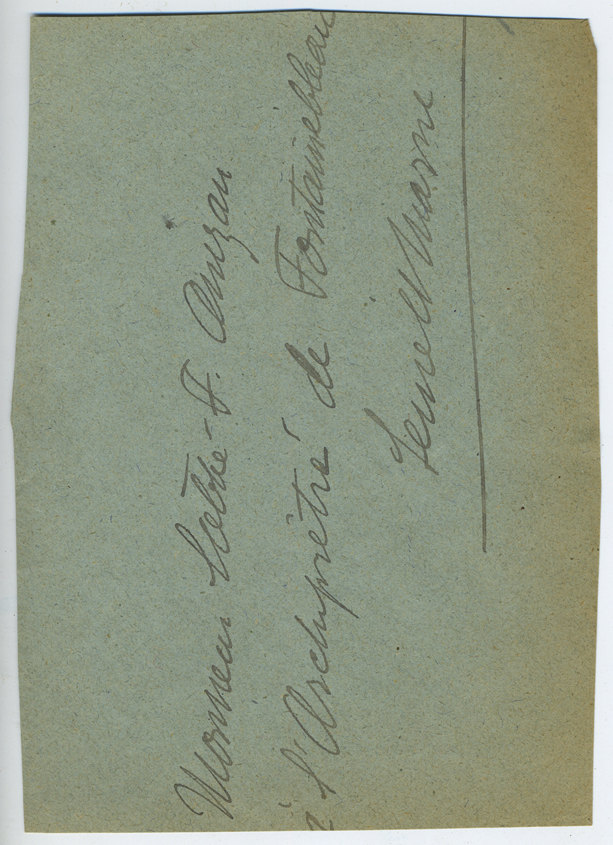 Monsieur l'abbé F. Anizan
à l'Archiprêtré de Fontainebleau
Seine et Marne